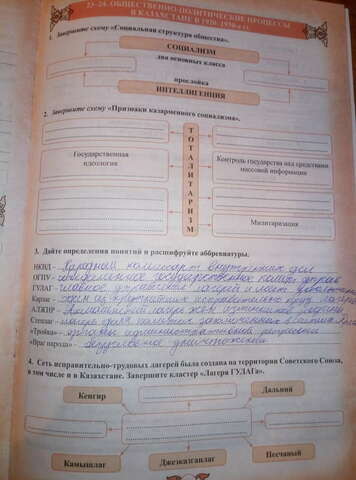 23–24. ОБЩЕСТВЕННО-ПОЛИТИЧЕСКИЕ ПРОЦЕССЫ
В КАЗАХСТАНЕ В 1920–1930-е гг.
1. Завершите схему «Социальная структура общества».
СОЦИАЛИЗМ
два основных класса
прослойка
ИНТЕЛЛИГЕНЦИЯ
2. Завершите схему «Признаки казарменного социализма».
ТОТАЛИТАРИЗМ
Государственная
идеология
Контроль государства над средствами
массовой информации
Милитаризация
3. Дайте определения понятий и расшифруйте аббревиатуры.
НКВД – Народный комиссариат внутренних дел
ОГПУ – государственное
ГУЛАГ – главное управление лагерей и мест
Карлаг – один из крупнейших исправительно труд
АЛЖИР – Акмолинский лагерь жён изменников родины
Степлаг – лагерь для
«Тройка» – органы
«Враг народа» –
4. Сеть исправительно-трудовых лагерей была создана на территории Советского Союза,
в том числе и в Казахстане. Завершите кластер «Лагеря ГУЛАГа».
Кенгир
Дальний
Камышлаг
Джезказганлаг
Песчаный